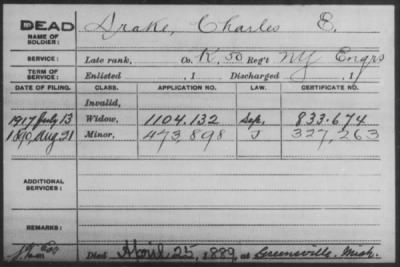 DEAD Drake, Charles E.
NAME OF SOLDIER:
SERVICE: Late rank, Co. K, 50 Reg't NY Engrs
TERM OF SERVICE: Enlisted , 1 Discharged , 1
DATE OF FILING. CLASS. APPLICATION NO. LAW. CERTIFICATE NO.
Invalid,
1917 July 13 Widow, 1104.132 Sep. 833.674
1890, Aug 21 Minor, 473,898 J 327,263
ADDITIONAL SERVICES:
REMARKS:
Died April 25, 1889 at Greenville, Mich.